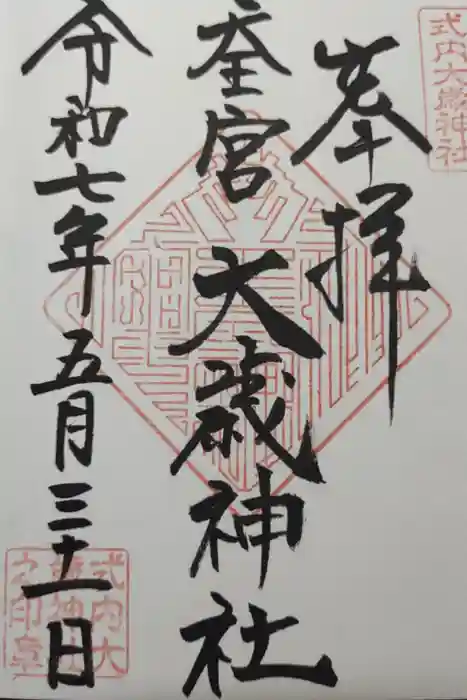 式内大歳神社
奉拝
天王宮 大歳神社
令和七年五月三十一日
式内大
歳神社
之印章